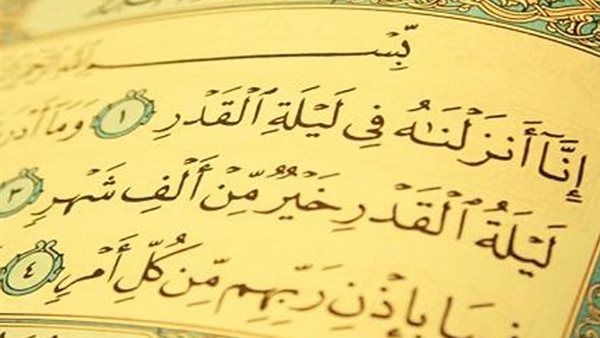 بِّسْمِ ٱللَّهِ ٱلرَّحْمَٰنِ
إِنَّآ أَنزَلْنَٰهُ فِى لَيْلَةِ ٱلْقَدْرِ ١ وَمَآ أَدْرَ
لَيْلَةُ ٱلْقَدْرِ خَيْرٌ مِّنْ أَلْفِ شَهْرٍ ٣
بِإِذْنِ رَبِّهِم مِّن كُلِّ أَمْرٍ ٤